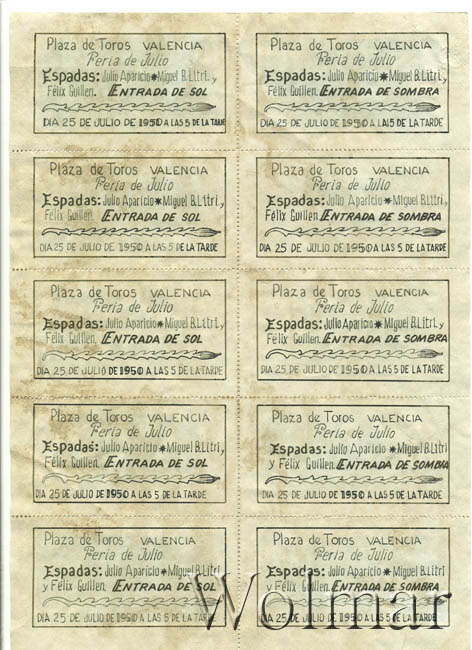 Plaza de Toros VALENCIA
Feria de Julio
Espadas: Julio Aparicio * Miguel B. Litri, y
Félix Guillen. ENTRADA DE SOL
DIA 25 DE JULIO DE 1950 A LAS 5 DE LA TARDE
Plaza de Toros VALENCIA
Feria de Julio
Espadas: Julio Aparicio * Miguel B. Litri, y
Félix Guillen. ENTRADA DE SOMBRA
DIA 25 DE JULIO DE 1950 A LAS 5 DE LA TARDE
Plaza de Toros VALENCIA
Feria de Julio
Espadas: Julio Aparicio * Miguel B. Litri, y
Félix Guillen. ENTRADA DE SOL
DIA 25 DE JULIO DE 1950 A LAS 5 DE LA TARDE
Plaza de Toros VALENCIA
Feria de Julio
Espadas: Julio Aparicio * Miguel B. Litri, y
Félix Guillen. ENTRADA DE SOMBRA
DIA 25 DE JULIO DE 1950 A LAS 5 DE LA TARDE
Plaza de Toros VALENCIA
Feria de Julio
Espadas: Julio Aparicio * Miguel B. Litri, y
Félix Guillen. ENTRADA DE SOL
DIA 25 DE JULIO DE 1950 A LAS 5 DE LA TARDE
Plaza de Toros VALENCIA
Feria de Julio
Espadas: Julio Aparicio * Miguel B. Litri, y
Félix Guillen. ENTRADA DE SOMBRA
DIA 25 DE JULIO DE 1950 A LAS 5 DE LA TARDE
Plaza de Toros VALENCIA
Feria de Julio
Espadas: Julio Aparicio * Miguel B. Litri
y Félix Guillen. ENTRADA DE SOL
DIA 25 DE JULIO DE 1950 A LAS 5 DE LA TARDE
Plaza de Toros VALENCIA
Feria de Julio
Espadas: Julio Aparicio * Miguel B. Litri
y Félix Guillen. ENTRADA DE SOMBRA
DIA 25 DE JULIO DE 1950 A LAS 5 DE LA TARDE
Plaza de Toros VALENCIA
Feria de Julio
Espadas: Julio Aparicio * Miguel B. Litri
y Félix Guillen. ENTRADA DE SOL
DIA 25 DE JULIO DE 1950 A LAS 5 DE LA TARDE
Plaza de Toros VALENCIA
Feria de Julio
Espadas: Julio Aparicio * Miguel B. Litri
y Félix Guillen. ENTRADA DE SOMBRA
DIA 25 DE JULIO DE 1950 A LAS 5 DE LA TARDE
Wolmar